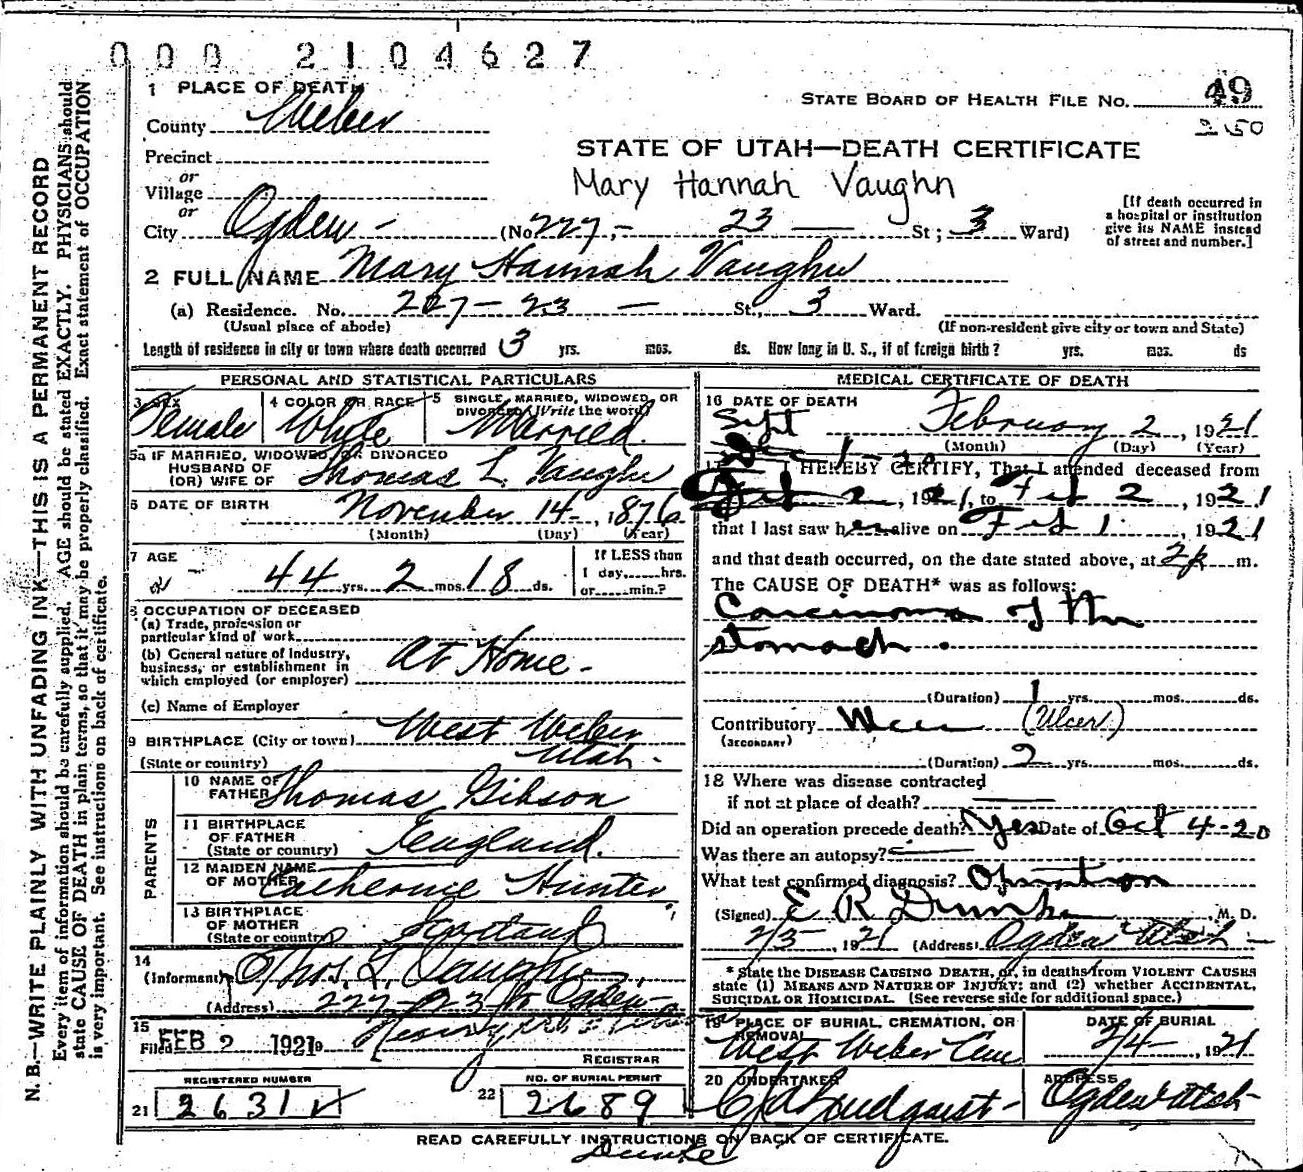 000 2104627
1 PLACE OF DEATH
STATE BOARD OF HEALTH FILE NO. 49
2150
County Weber
STATE OF UTAH—DEATH CERTIFICATE
Precinct
or
Mary Hannah Vaughn
Village
or
[If death occurred in
a hospital or institution
give its NAME instead
of street and number.]
City Ogden - (No 227,- 23 — St; 3 Ward)
2 FULL NAME Mary Hannah Vaughn
(a) Residence. No. 227-23 — St., 3 Ward.
(Usual place of abode) (If non-resident give city or town and State)
Length of residence in city or town where death occurred 3 yrs. mos. ds. How long in U. S., if of foreign birth? yrs. mos. ds
PERSONAL AND STATISTICAL PARTICULARS
3 SEX
Female
4 COLOR OR RACE
White
5 SINGLE, MARRIED, WIDOWED, OR
DIVORCED (Write the word)
Married.
5a IF MARRIED, WIDOWED, OR DIVORCED
HUSBAND OF
(OR) WIFE OF Thomas L. Vaughn
6 DATE OF BIRTH November 14-, 1876
(Month) (Day) (Year)
7 AGE
44 yrs. 2 mos. 18 ds.
If LESS than
1 day,......hrs.
or......min.?
8 OCCUPATION OF DECEASED
(a) Trade, profession or
particular kind of work
(b) General nature of Industry,
business, or establishment in
which employed (or employer) At Home -
(c) Name of Employer
9 BIRTHPLACE (City or town) West Weber
(State or country) Utah.
PARENTS
10 NAME OF
FATHER Thomas Gibson
11 BIRTHPLACE
OF FATHER
(State or country) England.
12 MAIDEN NAME
OF MOTHER Catherine Hunter
13 BIRTHPLACE
OF MOTHER
(State or country) Scotland
14
(Informant) Thos. L. Vaughn
(Address) 227-23 St Ogden
15
Filed FEB 2 1921
REGISTRAR
REGISTERED NUMBER
21 2631
NO. OF BURIAL PERMIT
22 2689
MEDICAL CERTIFICATE OF DEATH
16 DATE OF DEATH February 2, 1921
(Month) (Day) (Year)
Sept
17 I HEREBY CERTIFY, That I attended deceased from
Feb 2, 1921, to Feb 2, 1921
that I last saw her alive on Feb 1, 1921
and that death occurred, on the date stated above, at 2p m.
The CAUSE OF DEATH* was as follows:
Carcinoma of the
stomach.
(Duration) 1 yrs. mos. ds.
Contributory Ulcer (Ulcer)
(SECONDARY)
(Duration) 2 yrs. mos. ds.
18 Where was disease contracted
if not at place of death?
Did an operation precede death? Yes Date of Oct 4-20
Was there an autopsy?
What test confirmed diagnosis? Operation
(Signed) E R Dumke, M. D.
2/5, 1921 (Address) Ogden Utah -
* State the DISEASE CAUSING DEATH, or, in deaths from VIOLENT CAUSES
state (1) MEANS AND NATURE OF INJURY: and (2) whether ACCIDENTAL,
SUICIDAL OR HOMICIDAL. (See reverse side for additional space.)
19 PLACE OF BURIAL, CREMATION, OR
REMOVAL
West Weber Cem
DATE OF BURIAL
2/4-, 1921
20 UNDERTAKER
Lindquist -
ADDRESS
Ogden Utah
READ CAREFULLY INSTRUCTIONS ON BACK OF CERTIFICATE.
Dumke
N. B.—WRITE PLAINLY WITH UNFADING INK—THIS IS A PERMANENT RECORD
Every item of information should be carefully supplied. AGE should be stated EXACTLY. PHYSICIANS should
state CAUSE OF DEATH in plain terms, so that it may be properly classified. Exact statement of OCCUPATION
is very important. See instructions on back of certificate.